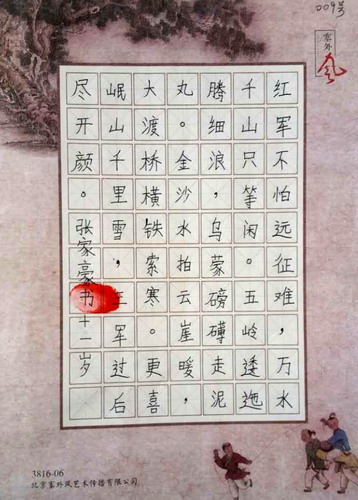 009号
塞外风
红军不怕远征难，万水
千山只等闲。五岭逶迤
腾细浪，乌蒙磅礴走泥
丸。金沙水拍云崖暖，
大渡桥横铁索寒。更喜
岷山千里雪，三军过后
尽开颜。张家豪书十一岁
3816-06
北京塞外风艺术传播有限公司